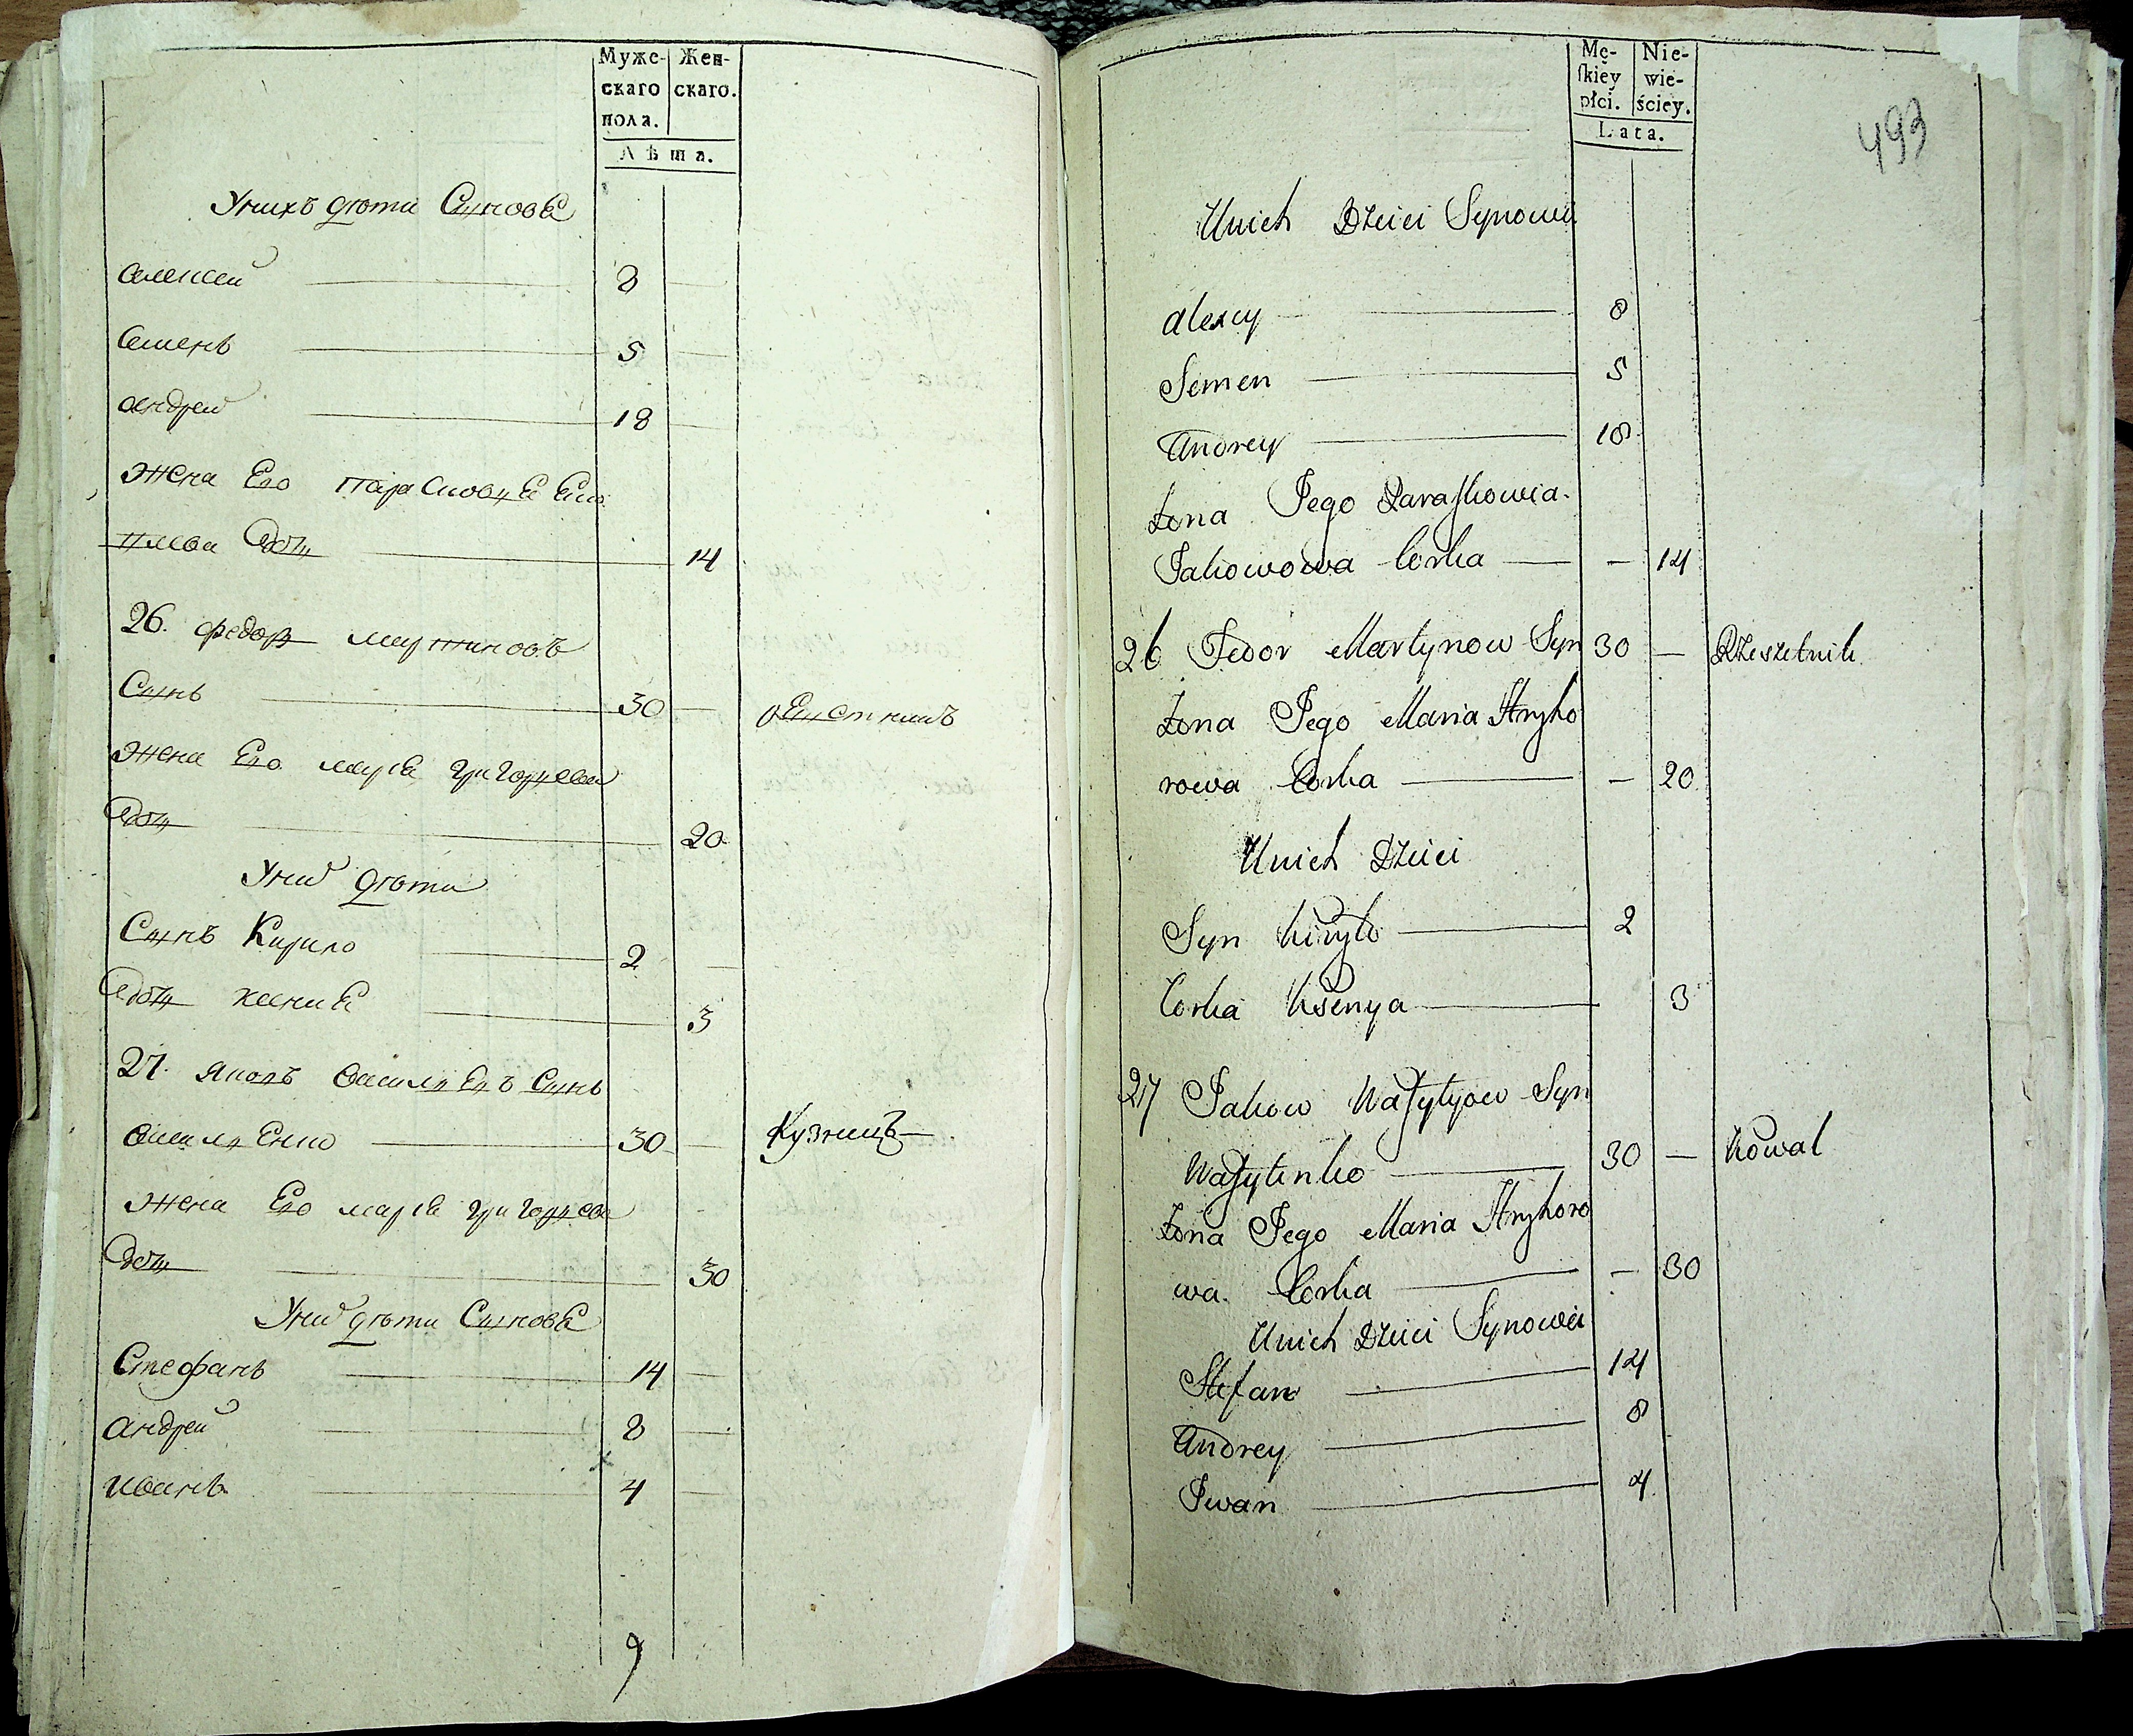 Муже-
скаго
пола.
Жен-
скаго.
Лѣта.
У нихъ дѣти Сыновья
Алексей 8
Семенъ 5
Андрей 18
Жена Его Парасковья Яко
влева Дочь 14
26. Федоръ Мартиновъ
Сынъ 30
Жена Его Марья Григорьева
Дочь 20
У них дѣти
Сынъ Кирило 2
Дочь Ксения 3
27. Яковъ Васильевъ Сынъ
Василенко 30 Кузнецъ
Жена Его Марья Григорьева
Дочь 30
У них дѣти Сыновья
Стефанъ 14
Андрей 8
Иванъ 4
9
Mę-
ſkiey
płci.
Nie-
wie-
ściey.
Lata.
493
Unich Dzieci Synowie
Alexey 8
Semen 5
Andrey 18
Żona Jego Paraſkowia
Jakowowa Corka — 14
26 Fedor Martynow Syn 30 — Rzeszetnik
Żona Jego Maria Hryho
rowa Corka — 20
Unich Dzieci
Syn Kiryło 2
Corka Ksenya 3
27 Jakow Waſylyow Syn
Waſylenko 30 — Kowal
Żona Jego Maria Hryhoro
wa Corka — 30
Unich Dzieci Synowie
Stefan 14
Andrey 8
Iwan 4